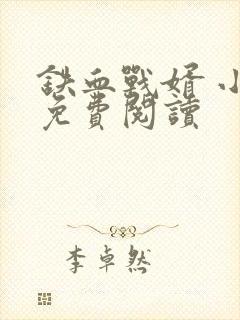 鉄血戰婿 小
免費閱讀
李卓然